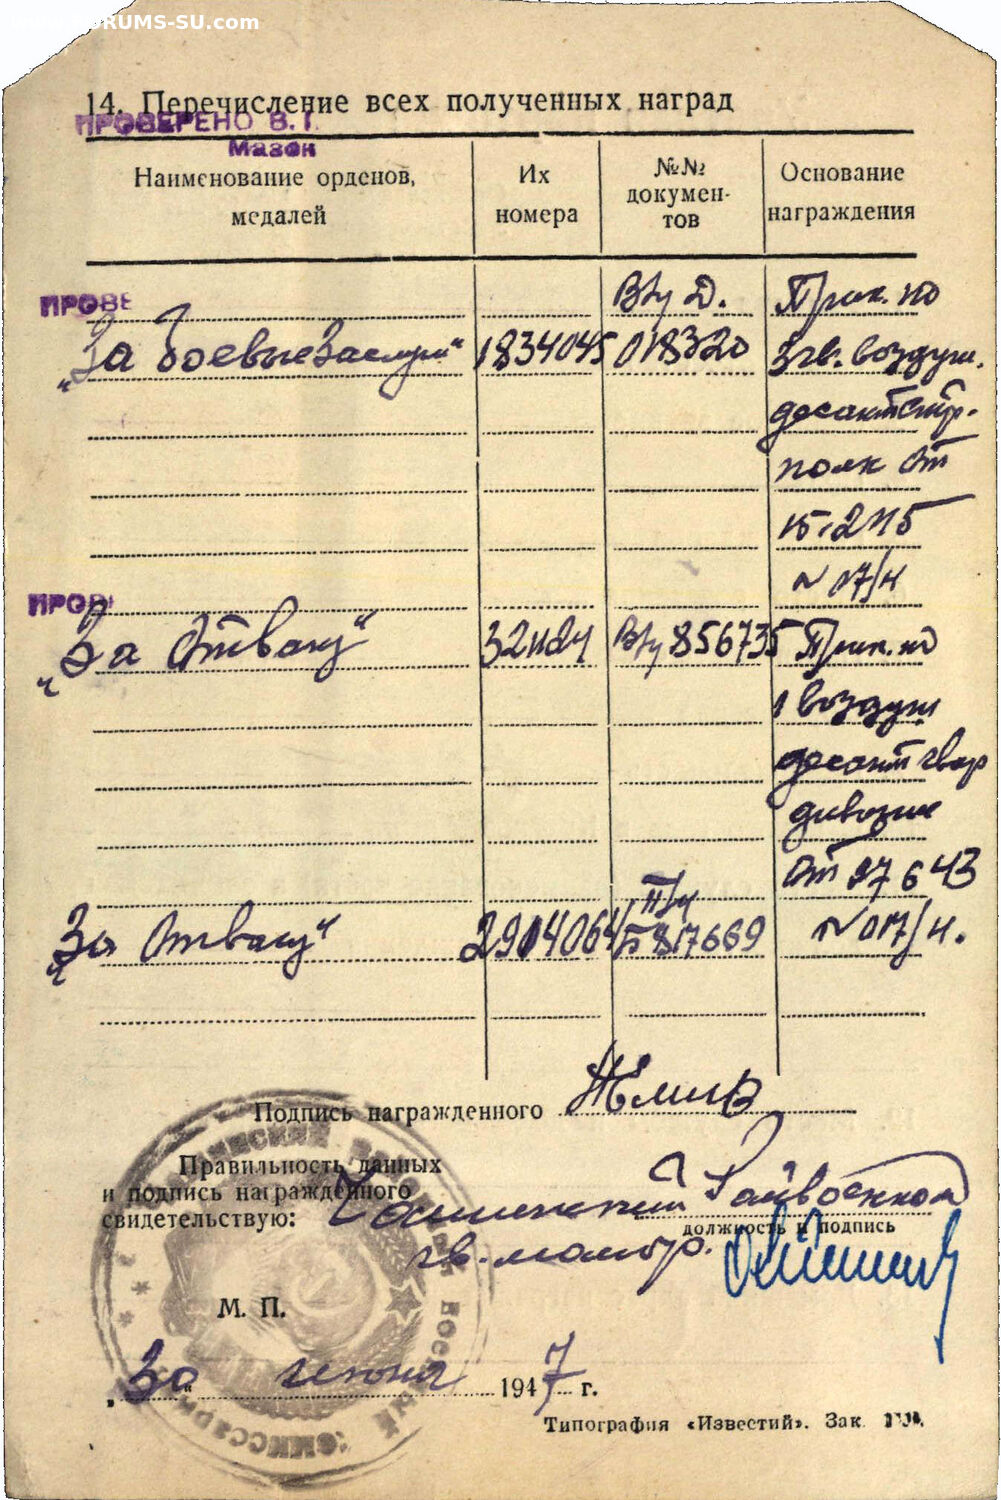 www.FORUMS-SU.com
14. Перечисление всех полученных наград
ПРОВЕРЕНО В.Т.
Мазок
Наименование орденов, медалей
Их номера
№№ докумен-тов
Основание награждения
ПРОВЕ
Вру Д. Прик. по
„За боевые Заслуги“ 1834045 018320 3 гв. воздуш.
десант стр.
полк От
15.2 45
N 17/н
ПРОВ
„За Отвагу“ 32424 856735 Прик. по
1 воздуш
десант гвар
дивизии
От 27 6 43
„За Отвагу“ 2904064 Б 817669 N 017/н.
Подпись награжденного
Правильность данных
и подпись награжденного
свидетельствую: Райвоенком
должность и подпись
гв. майор.
М. П.
„30“ июня 1947 г.
Типография «Известий». Зак.